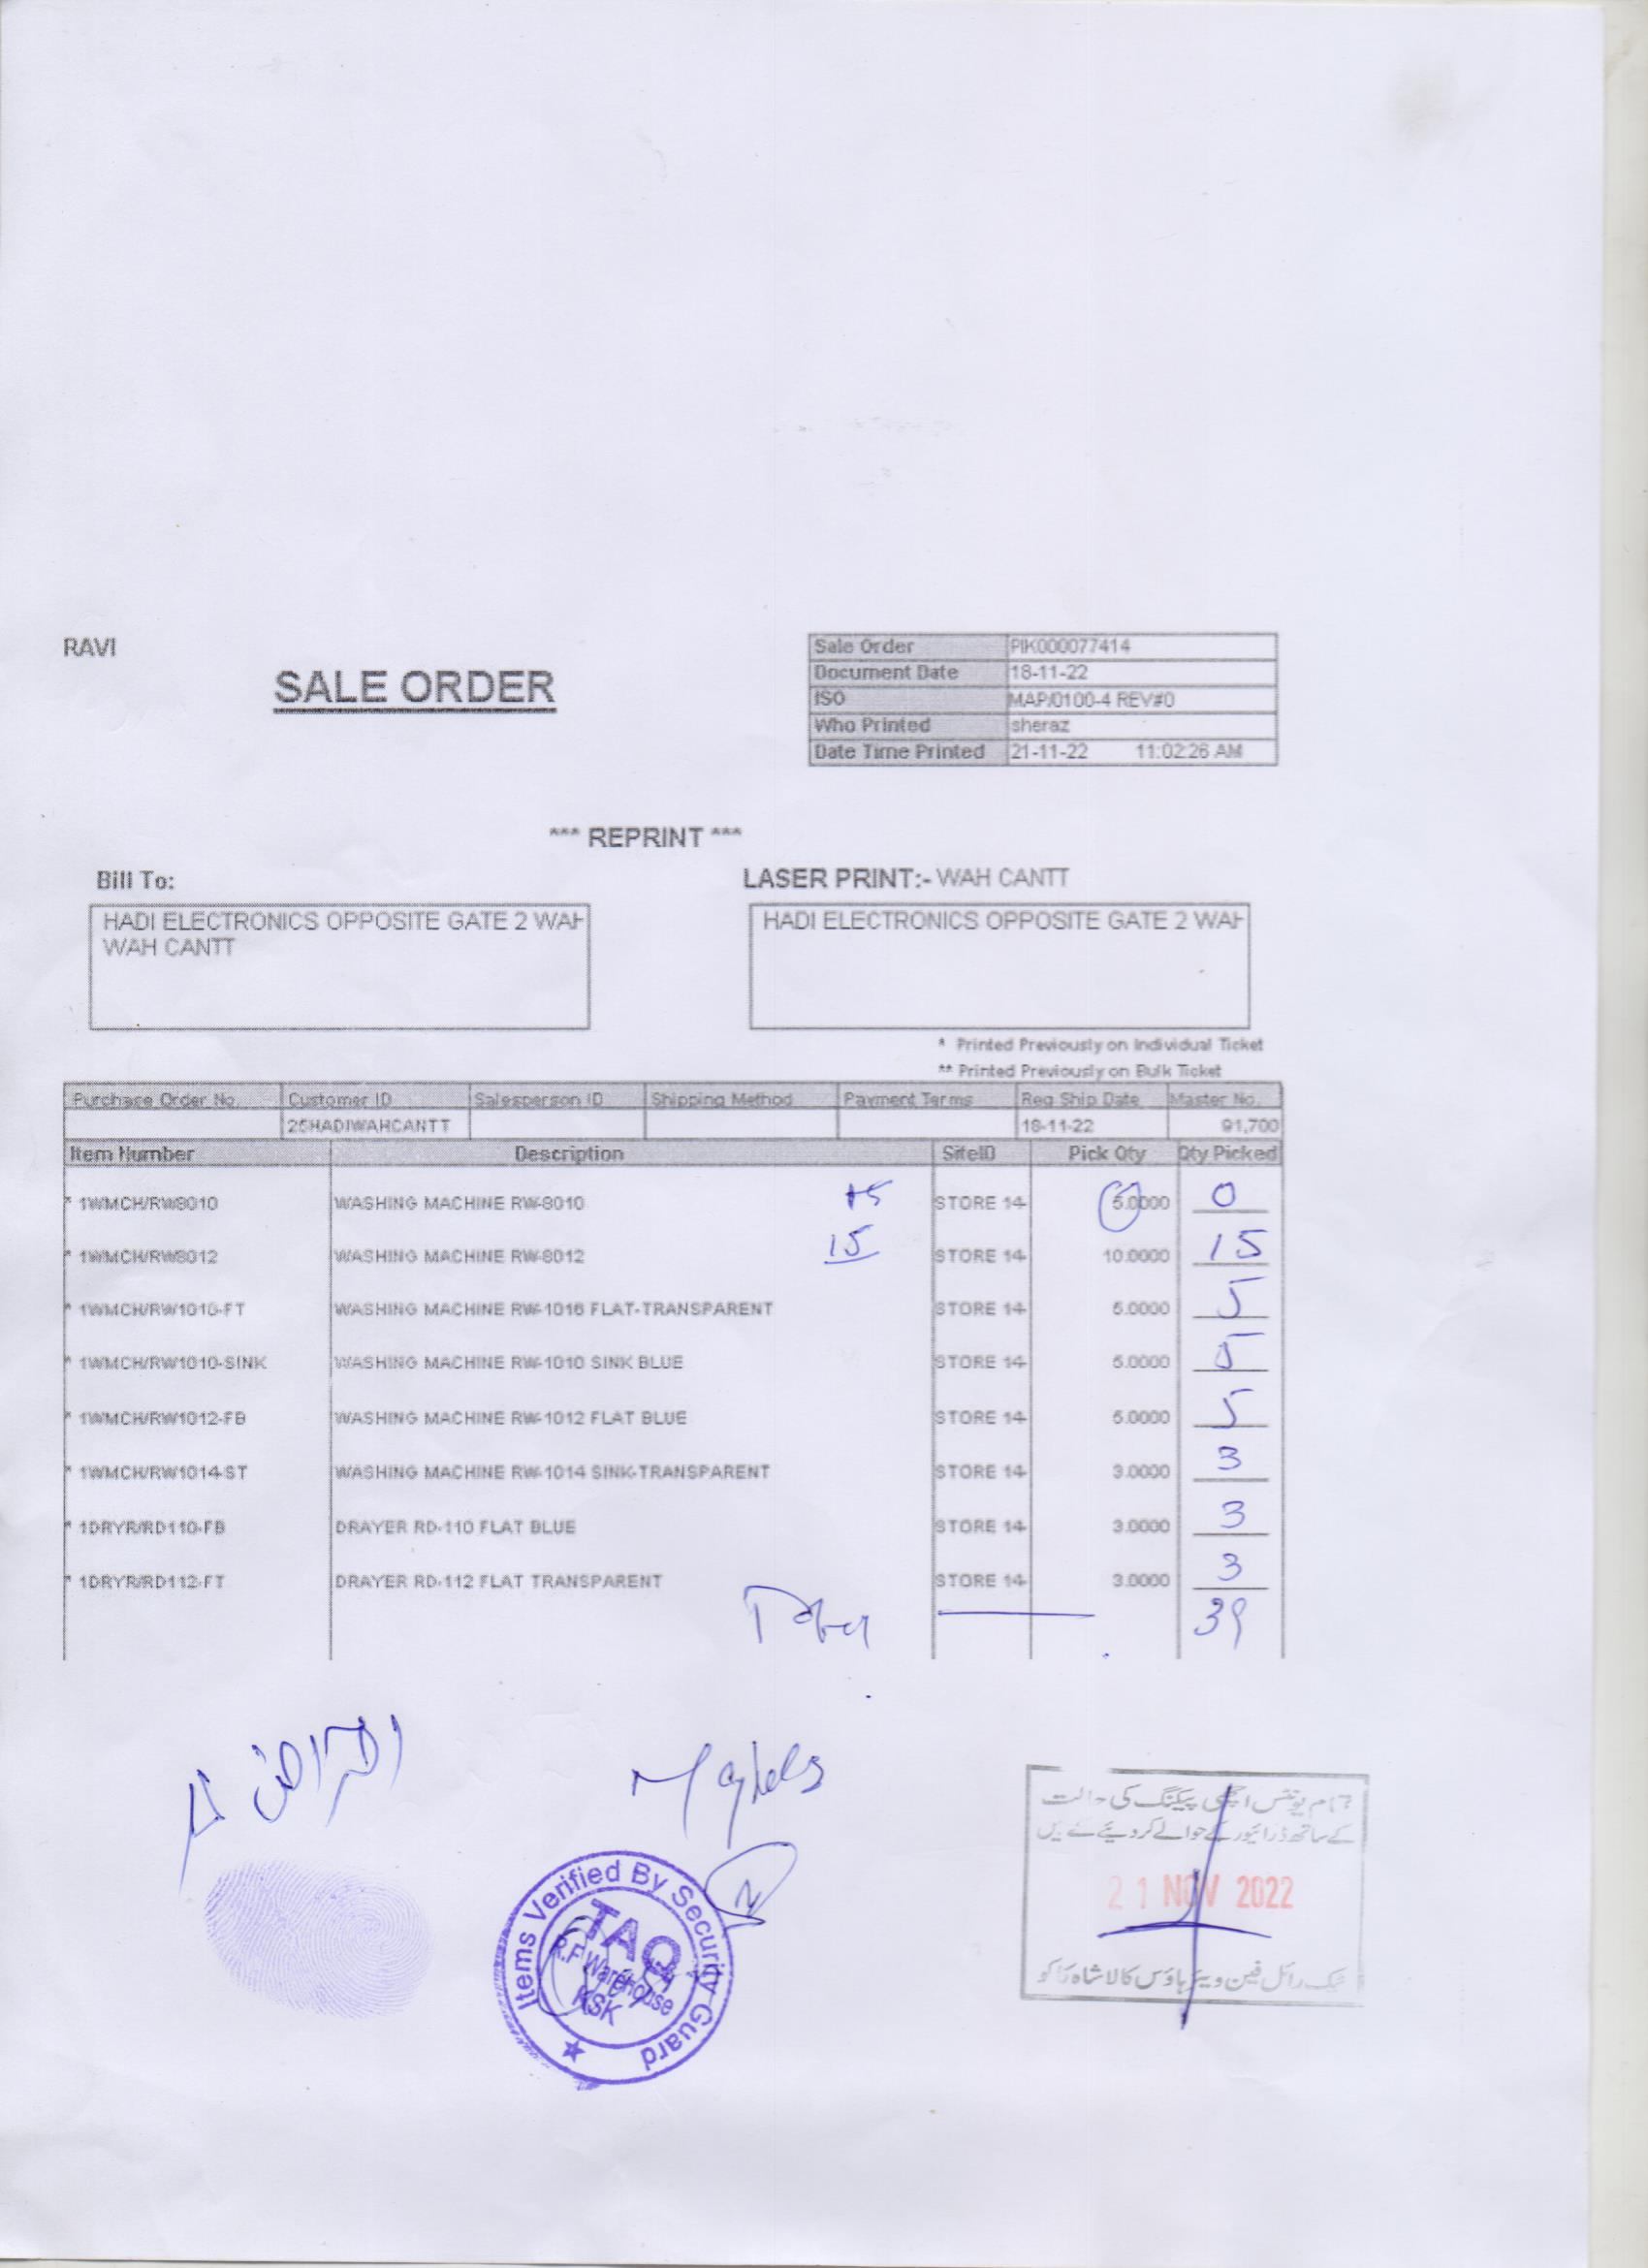 RAVI
SALE ORDER
Sale Order PIK000077414
Document Date 18-11-22
ISO MAP/0100-4 REV#0
Who Printed sheraz
Date Time Printed 21-11-22 11:02:26 AM
*** REPRINT ***
Bill To:
LASER PRINT:- WAH CANTT
HADI ELECTRONICS OPPOSITE GATE 2 WAH
WAH CANTT
HADI ELECTRONICS OPPOSITE GATE 2 WAH
* Printed Previously on Individual Ticket
** Printed Previously on Bulk Ticket
Purchase Order No. Customer ID Salesperson ID Shipping Method Payment Terms Req Ship Date Master No.
25HADIWAHCANTT 18-11-22 91,700
Item Number Description SiteID Pick Qty Qty Picked
* 1WMCH/RW8010 WASHING MACHINE RW-8010 +5 STORE 14 5.0000 0
* 1WMCH/RW8012 WASHING MACHINE RW-8012 15 STORE 14 10.0000 15
* 1WMCH/RW1010-FT WASHING MACHINE RW-1010 FLAT-TRANSPARENT STORE 14 5.0000 5
* 1WMCH/RW1010-SINK WASHING MACHINE RW-1010 SINK BLUE STORE 14 5.0000 5
* 1WMCH/RW1012-FB WASHING MACHINE RW-1012 FLAT BLUE STORE 14 5.0000 5
* 1WMCH/RW1014-ST WASHING MACHINE RW-1014 SINK-TRANSPARENT STORE 14 3.0000 3
* 1DRYR/RD110-FB DRAYER RD-110 FLAT BLUE STORE 14 3.0000 3
* 1DRYR/RD112-FT DRAYER RD-112 FLAT TRANSPARENT STORE 14 3.0000 3
39
Items Verified By Security Guard
TAQ
R.F Warehouse
KSK
تمام یونٹس اچھی پیکنگ کی حالت
کے ساتھ ڈرائیور کے حوالے کر دیئے گئے ہیں
21 NOV 2022
رائل فین ویئر ہاؤس کالا شاہ کاکو